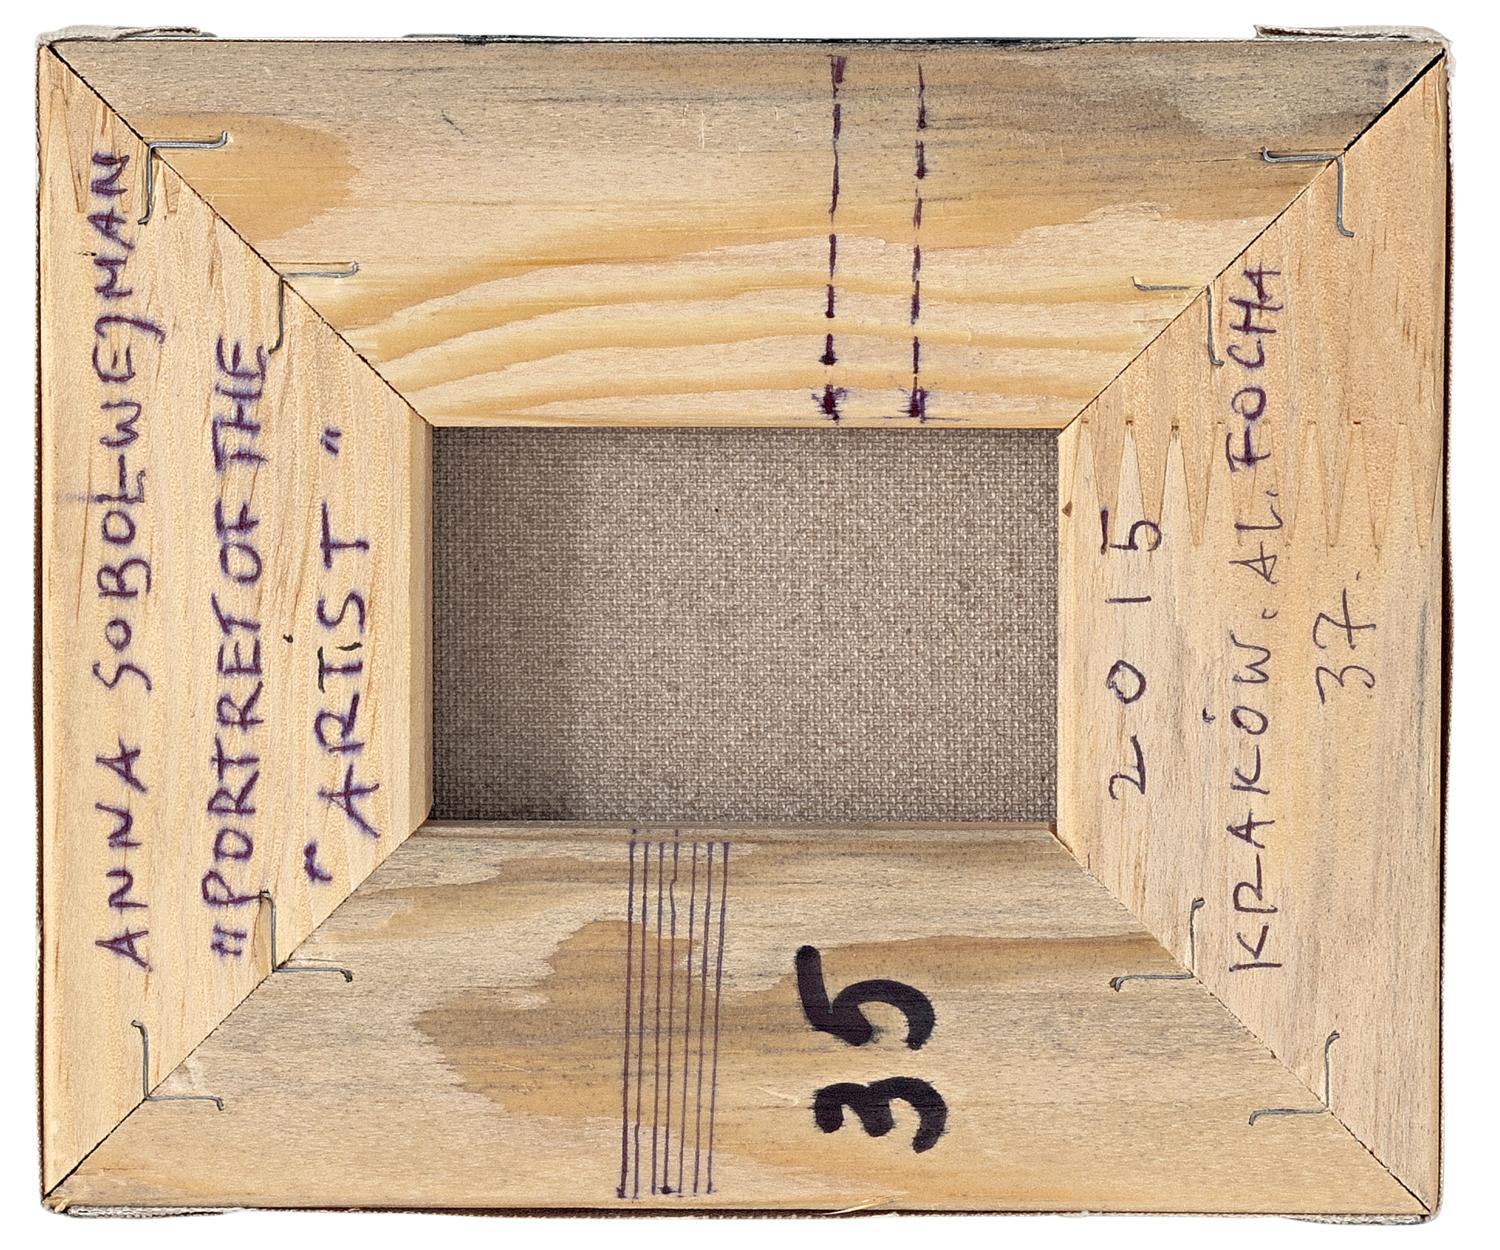 ANNA SOBOL-WEJMAN
"PORTRET OF THE
"ARTIST"
35
2015
KRAKÓW. AL. FOCHA
37.